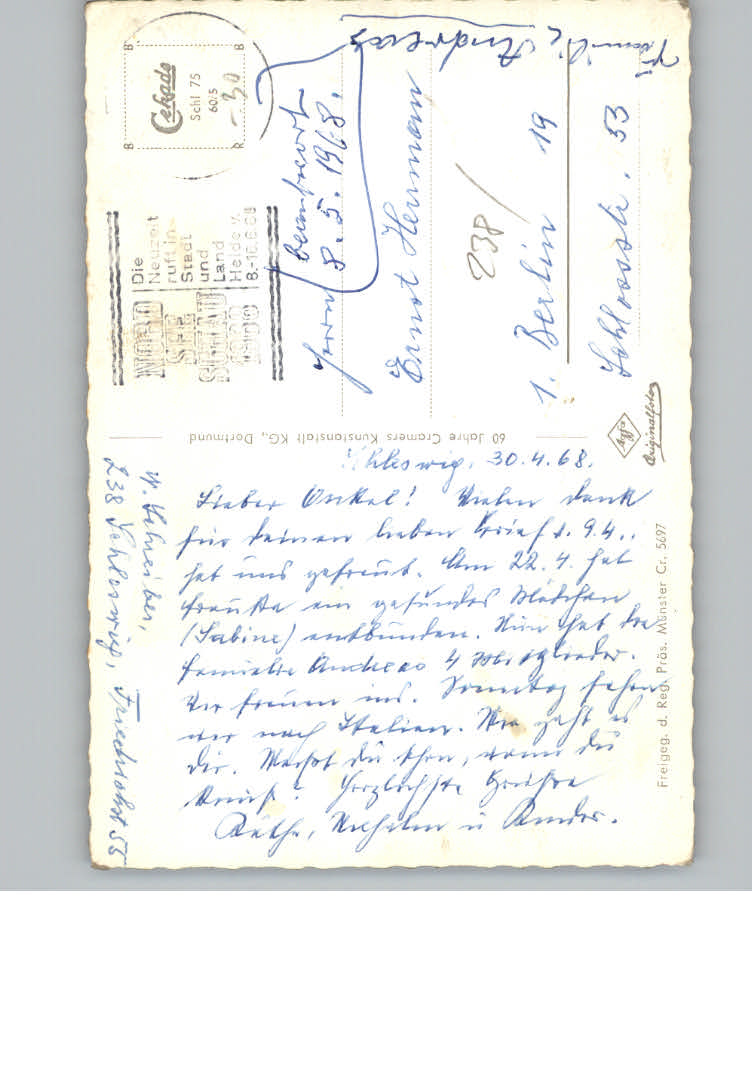 Schleswig, 30.4.68.
Lieber Onkel! Vielen Dank
für Deinen lieben Brief v. 9.4.,
hat uns gefreut. Am 22.4. hat
ein gesundes Mädchen
(Sabine) entbunden. Nun hat die
Familie Andreas 4 Mitglieder.
Wir freuen uns. Sonntag fahren
wir nach Italien. Wie geht es
Dir. Weißt Du schon, wann Du
kommst? Herzlichste Grüße
Käthe, Wilhelm u Kinder.
W. Schreiber,
238 Schleswig, 55
60 Jahre Cramers Kunstanstalt KG., Dortmund
Freigeg. d. Reg. Präs. Münster Cr. 5697
Agfa
Originalfoto
Cekade
Schl 75
60/5
-30
B
B
B
NORD
SEE
SCHAU
1968
Die
Neuzeit
ruft in
Stadt
und
Land
Heide/H.
8.-16.6.68
beantwort
8.5.1968.
Familie Andreas
Herrn
Ernst Hermann
238/
1. Berlin 19
Schlossstr. 53